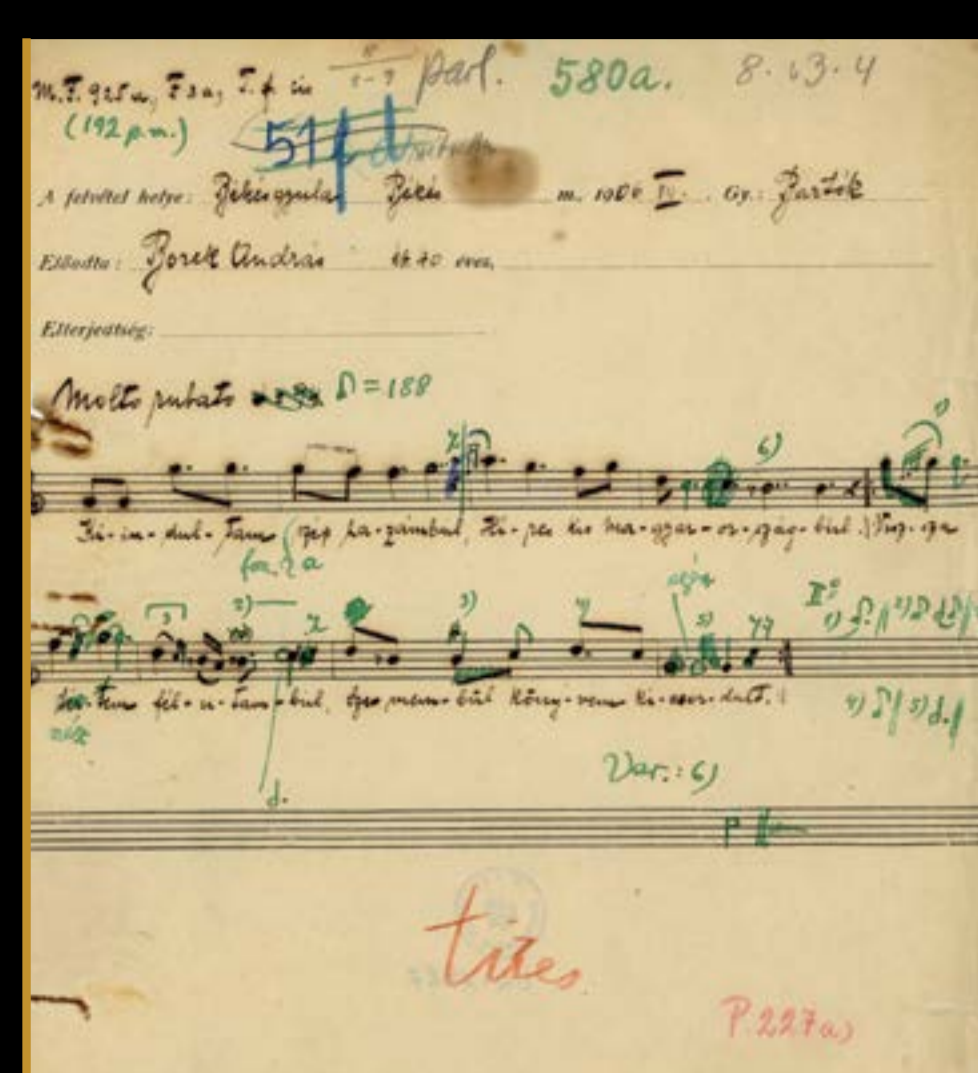 M.F. 925a,
parl. 580a. 8. 13. 4
(192 p.m.)
51
A felvétel helye: Békésgyula Békés m. 1906 IV. Gy.: Bartók
Előadta: Borek András 40 éves,
Elterjedtség:
Molto rubato ♪=188
6) 1)
Ki-in-dul-tam szép ha-zámbul, Hi-res kis Ma-gyar-or-szág-bul. Visz-sza
2) 3) 3) 5) II°
1) 2)
-tem fél-u-tam-bul, Sze-mem-bűl köny-vem ki-csor-dult.
néz
4) 5) d.
d.
Var.: 6)
tizes
P. 227a)